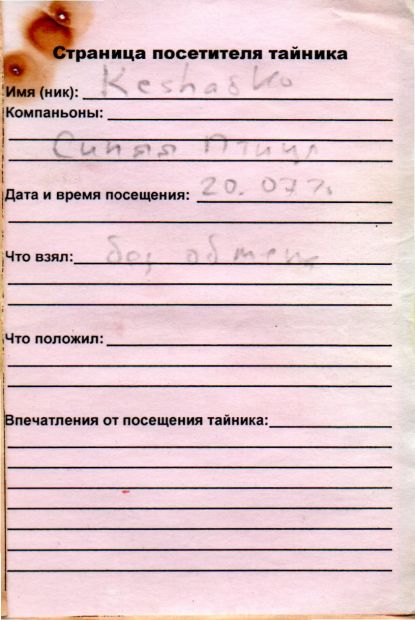 Страница посетителя тайника
Имя (ник): Keshasko
Компаньоны:
Синяя Птица
Дата и время посещения: 20.07г.
Что взял: без обмена
Что положил:
Впечатления от посещения тайника: